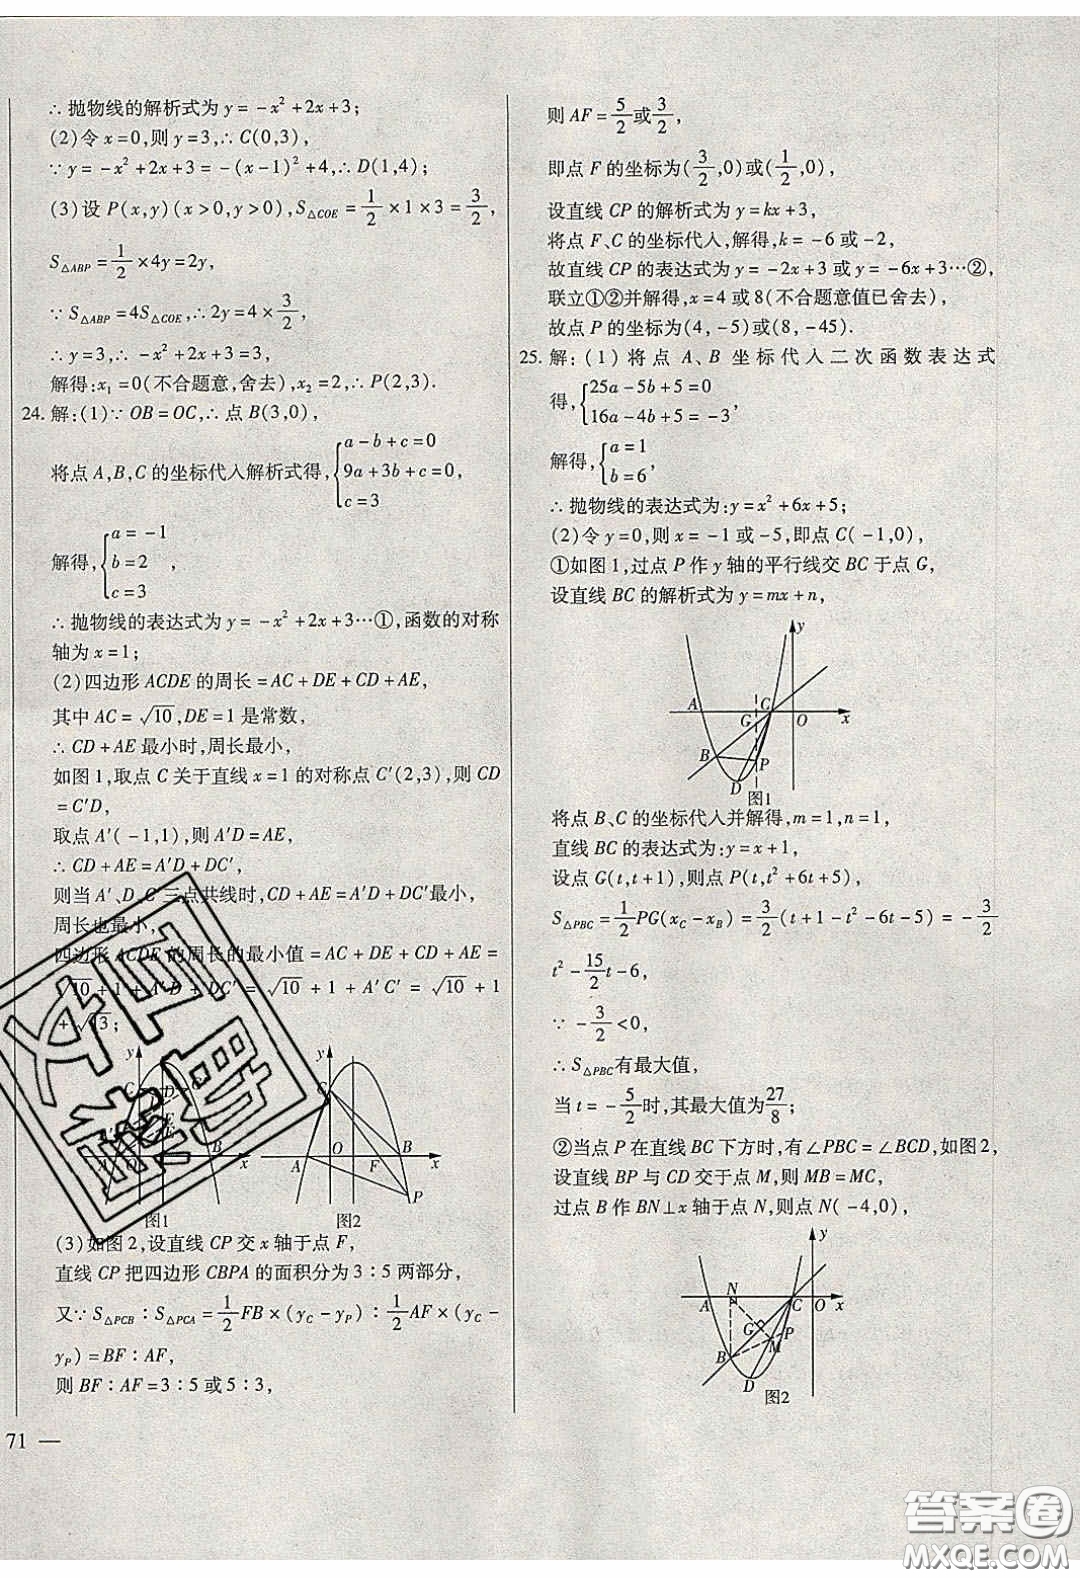 ∴ 抛物线的解析式为 y = -x² + 2x + 3；
(2)令 x = 0，则 y = 3，∴ C(0,3)，
∵ y = -x² + 2x + 3 = -(x-1)² + 4，∴ D(1,4)；
(3)设 P(x,y)(x>0,y>0)，S△COE = 1/2 × 1 × 3 = 3/2，
S△ABP = 1/2 × 4y = 2y，
∵ S△ABP = 4S△COE，∴ 2y = 4 × 3/2，
∴ y = 3，∴ -x² + 2x + 3 = 3，
解得：x₁ = 0(不合题意，舍去)，x₂ = 2，∴ P(2,3).
24. 解：(1)∵ OB = OC，∴ 点 B(3,0)，
将点 A,B,C 的坐标代入解析式得，{a - b + c = 0
9a + 3b + c = 0，
c = 3
解得，{a = -1
b = 2，
c = 3
∴ 抛物线的表达式为 y = -x² + 2x + 3…①，函数的对称
轴为 x = 1；
(2)四边形 ACDE 的周长 = AC + DE + CD + AE，
其中 AC = √10，DE = 1 是常数，
∴ CD + AE 最小时，周长最小，
如图 1，取点 C 关于直线 x = 1 的对称点 C′(2,3)，则 CD
= C′D，
取点 A′(-1,1)，则 A′D = AE，
∴ CD + AE = A′D + DC′，
则当 A′、D、C 三点共线时，CD + AE = A′D + DC′最小，
周长也最小，
四边形 ACDE 的周长的最小值 = AC + DE + CD + AE =
√10 + 1 + A′D + DC′ = √10 + 1 + A′C′ = √10 + 1
+ √13；
y
C
D
C′
A′
E
A
O
B
x
图1
y
C
A
O
F
B
x
P
图2
(3)如图 2，设直线 CP 交 x 轴于点 F，
直线 CP 把四边形 CBPA 的面积分为 3∶5 两部分，
又∵ S△PCB∶S△PCA = 1/2 FB × (y_C - y_P)∶1/2 AF × (y_C -
y_P) = BF∶AF，
则 BF∶AF = 3∶5 或 5∶3，
71 —
则 AF = 5/2 或 3/2，
即点 F 的坐标为(3/2,0)或(1/2,0)，
设直线 CP 的解析式为 y = kx + 3，
将点 F、C 的坐标代入，解得，k = -6 或 -2，
故直线 CP 的表达式为 y = -2x + 3 或 y = -6x + 3…②，
联立①②并解得，x = 4 或 8(不合题意值已舍去)，
故点 P 的坐标为(4，-5)或(8，-45).
25. 解：(1) 将点 A、B 坐标代入二次函数表达式
得，{25a - 5b + 5 = 0
16a - 4b + 5 = -3，
解得，{a = 1
b = 6，
∴ 抛物线的表达式为：y = x² + 6x + 5；
(2)令 y = 0，则 x = -1 或 -5，即点 C(-1,0)，
①如图 1，过点 P 作 y 轴的平行线交 BC 于点 G，
设直线 BC 的解析式为 y = mx + n，
y
A
C
G
O
x
B
P
D
图1
将点 B、C 的坐标代入并解得，m = 1，n = 1，
直线 BC 的表达式为：y = x + 1，
设点 G(t,t+1)，则点 P(t,t² + 6t + 5)，
S△PBC = 1/2 PG(x_C - x_B) = 3/2 (t + 1 - t² - 6t - 5) = -3/2
t² - 15/2 t - 6，
∵ -3/2 < 0，
∴ S△PBC 有最大值，
当 t = -5/2 时，其最大值为 27/8；
②当点 P 在直线 BC 下方时，有∠PBC = ∠BCD，如图 2，
设直线 BP 与 CD 交于点 M，则 MB = MC，
过点 B 作 BN⊥x 轴于点 N，则点 N(-4,0)，
y
N
A
C
O
x
G
P
M
B
D
图2
答案圈
MXQE.COM